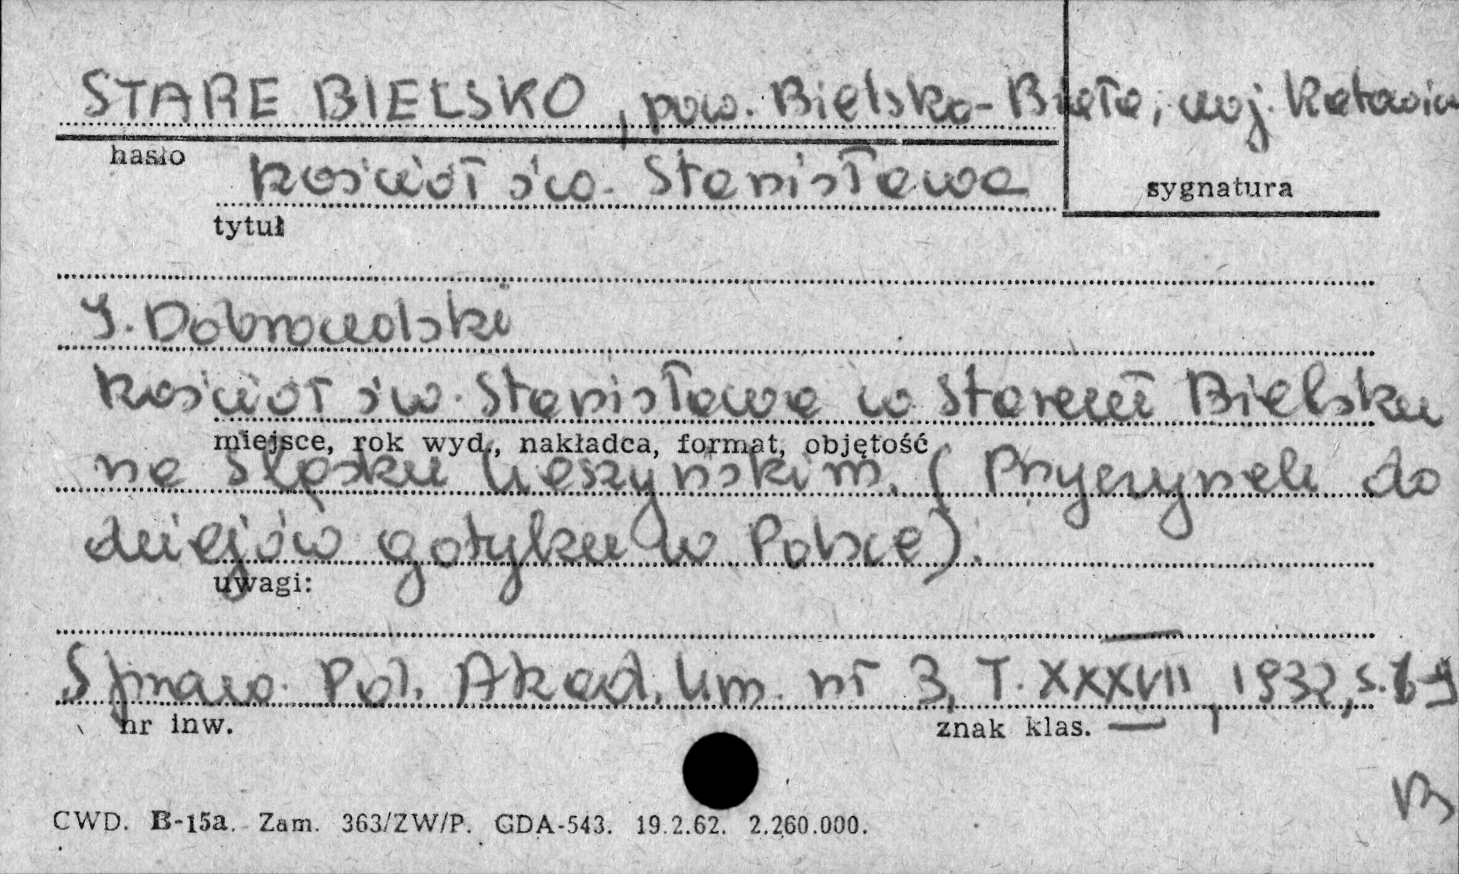 STARE BIELSKO, pow. Bielsko-Biała, woj. Katowice
hasło
kościół św. Stanisława
sygnatura
tytuł
J. Dobrowolski
kościół św. Stanisława w Starem Bielsku
miejsce, rok wyd., nakładca, format, objętość
na Śląsku Cieszyńskim. (Przyczynek do
dziejów gotyku w Polsce).
uwagi:
Sprawo. Pol. Akad. Um. nr 3, T. XXXVII, 1932, s.
nr inw.
znak klas.
B
CWD. B-15a. Zam. 363/ZW/P. GDA-543. 19.2.62. 2.260.000.